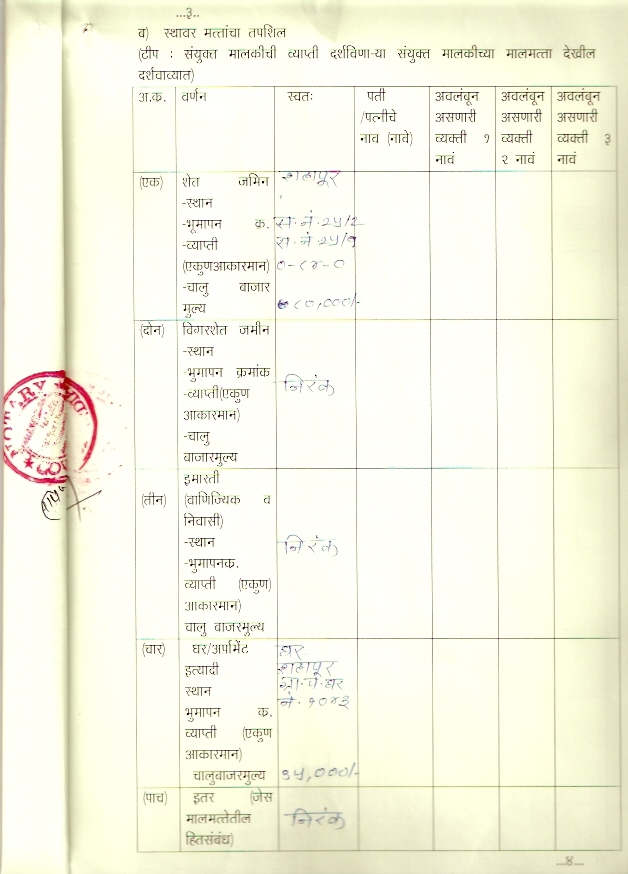 ...३..
ब) स्थावर मत्तांचा तपशिल
(टीप : संयुक्त मालकीची व्याप्ती दर्शविणा-या संयुक्त मालकीच्या मालमत्ता देखील
दर्शवाव्यात)
अ.क. वर्णन स्वतः पती /पत्नीचे नाव (नावे) अवलंबून असणारी व्यक्ती १ नावं अवलंबून असणारी व्यक्ती २ नावं अवलंबून असणारी व्यक्ती ३ नावं
(एक) शेत जमिन शहापूर
-स्थान
-भूमापन क्र. स.नं.२५/२
-व्याप्ती स.नं.२५/१
(एकुणआकारमान) ०-८४-०
-चालु बाजार
मुल्य ८०,०००/-
(दोन) विगरशेत जमीन
-स्थान
-भुमापन क्रमांक
-व्याप्ती(एकुण निरंक
आकारमान)
-चालु
बाजारमुल्य
इमारती
(तीन) (वाणिज्यिक व
निवासी)
-स्थान निरंक
-भुमापनक.
व्याप्ती (एकुण)
आकारमान)
चालु बाजरमुल्य
(चार) घर/अर्पामेंट घर
इत्यादी शहापूर
स्थान ग्रा.पं.घर
भुमापन क. नं. १०४३
व्याप्ती (एकुण
आकारमान)
चालुबाजरमुल्य ३५,०००/-
(पाच) इतर (जेस
मालमत्तेतील निरंक
हितसंबंध)
...४..
NOTARY